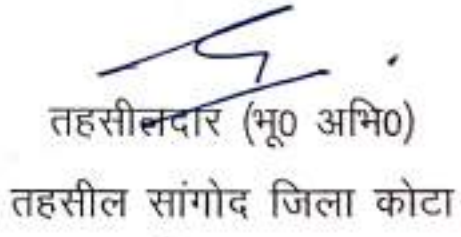 तहसीलदार (भू0 अभि0)
तहसील सांगोद जिला कोटा